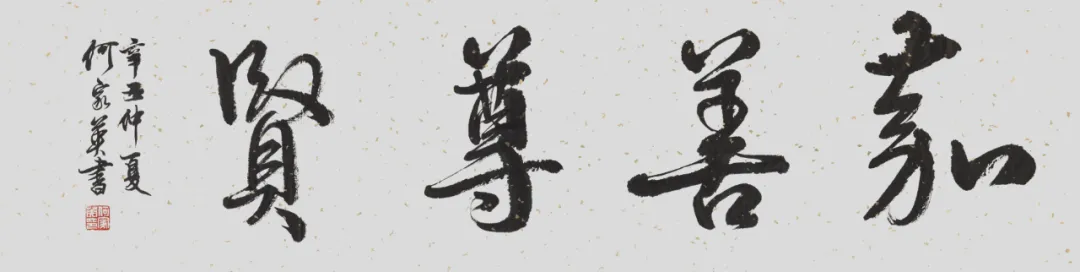 嘉善尊賢
辛丑仲夏
何家英書